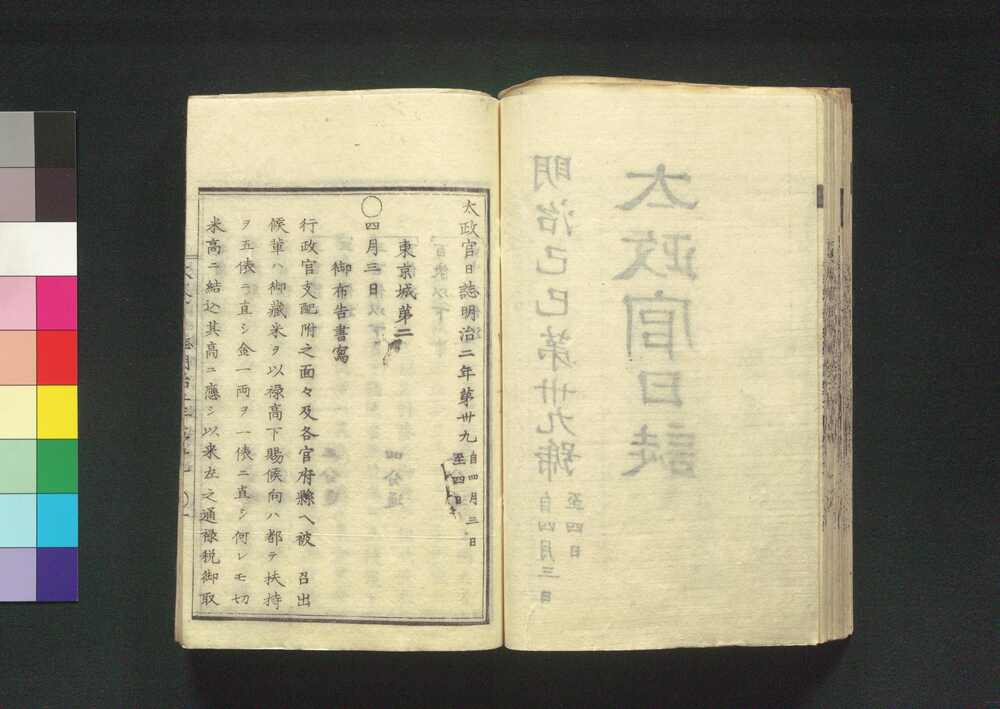 太政官日誌明治二年第卅九 自四月三日
至四日
東京城第二
○四月三日
御布告書寫
行政官支配附之面々及各官府縣ヘ被 召出
候輩ハ御藏米ヲ以禄高下賜候向ハ都テ扶持
ヲ五俵ニ直シ金一両ヲ一俵ニ直シ何レモ切
米高ニ結込其高ニ應シ以来左之通禄税御取
太政官日誌
明治己巳第卅九號 自四月三日
至四日